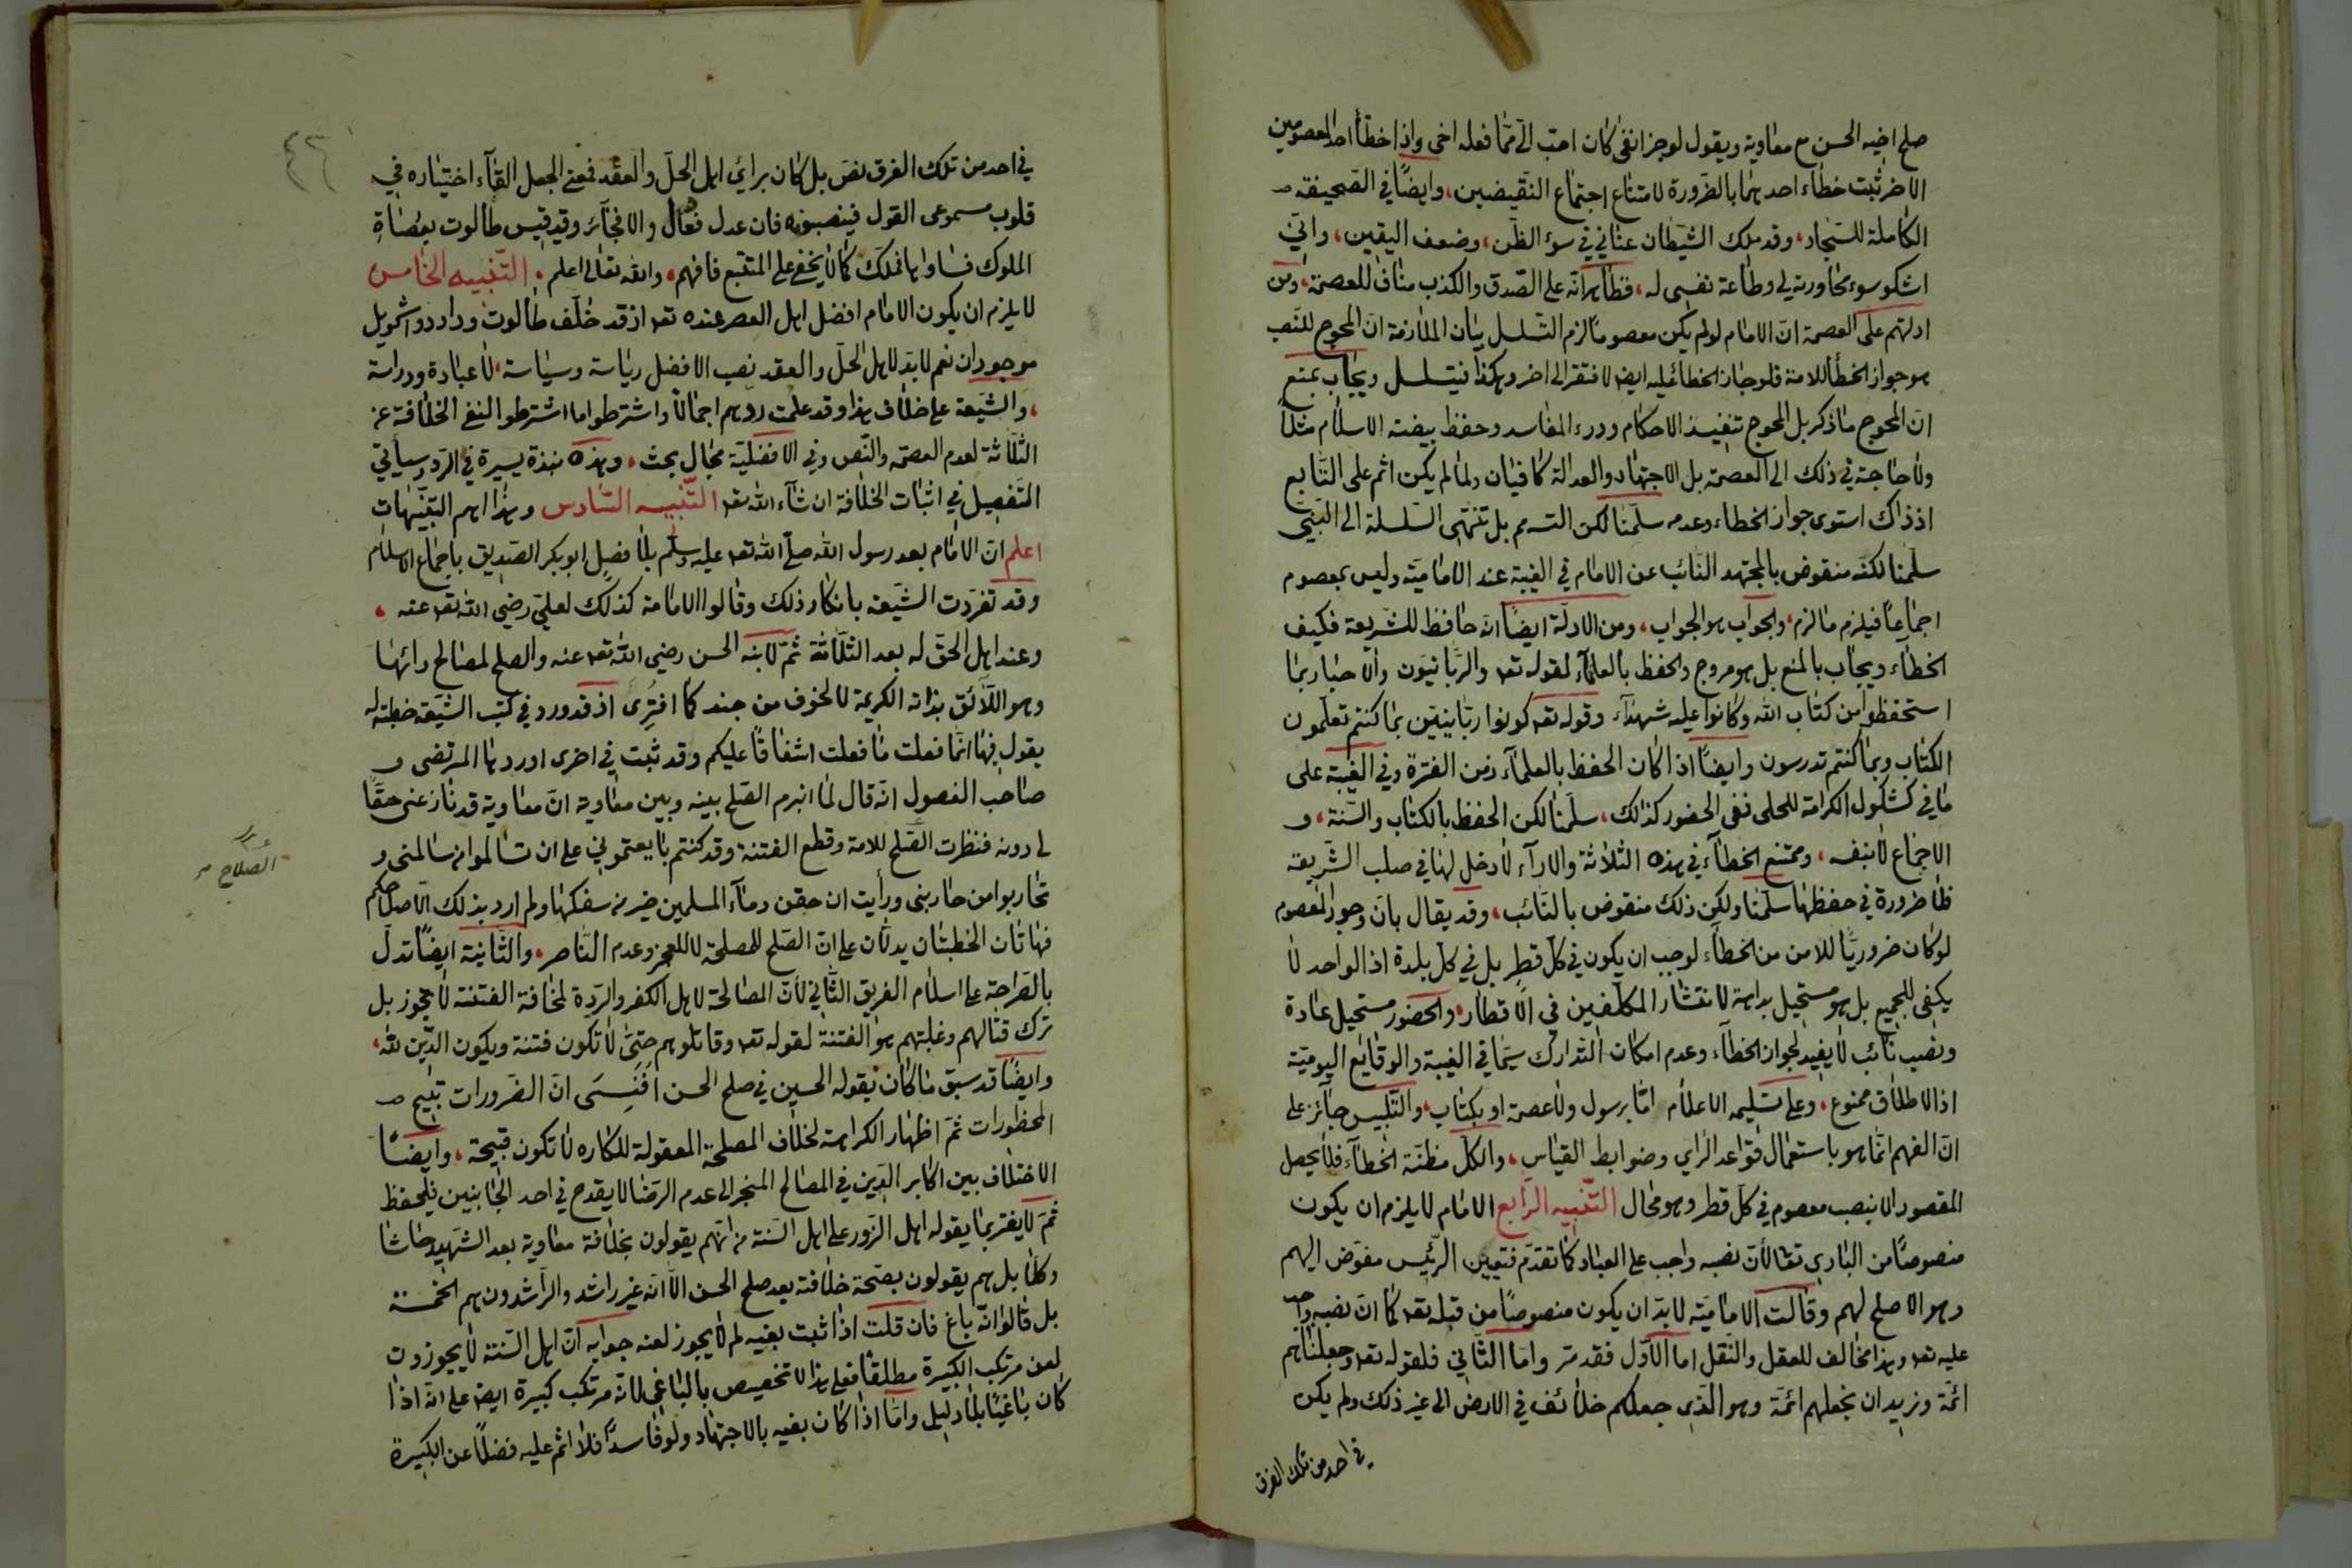 صلح اخيه الحسن مع معاوية ويقول لو جز انفى كان احب الىّ ممّا فعله اخى واذا خطّأ احد المعصومين
الآخر ثبت خطاء احدهما بالضرورة لامتناع اجتماع النقيضين، وايضًا في الصحيفة
الكاملة للسجاد، وقد ملك الشيطان عناني في سوء الظن، وضعف اليقين، وانّي
اشكو سوء مجاورته لي وطاعة نفسى له، فظاهر انه على الصّدق والكذب مناف للعصمة، ومن
ادلتهم على العصمة انّ الامام لو لم يكن معصومًا لزم التّسلسل بيان الملازمة انّ المحوج للنّصب
هو جواز الخطأ للامة فلو جاز الخطأ عليه ايضا لافتقر الى اخر وهكذا فيتسلسل ويجاب بمنع
انّ المحوج ما ذكر بل المحوج تنفيذ الاحكام ودرء المفاسد وحفظ بيضة الاسلام مثلًا
ولا حاجة في ذلك الى العصمة بل الاجتهاد والعدالة كافيان ولما لم يكن اثم على التّابع
اذ ذاك استوى جواز الخطاء وعدمه سلّمنا لكن التسه مم بل تنتهى السّلسلة الى النّبيّ
سلّمنا لكنّه منقوض بالمجتهد النّائب عن الامام في الغيبة عند الاماميّة وليس بمعصوم
اجماعًا فيلزم ما لزم، والجواب هو الجواب، ومن الادلّة ايضًا انّه حافظ للشّريعة فكيف
الخطاء ويجاب بالمنع بل هو مروج والحفظ بالعلماء لقوله تعه والرّبّانيّون والاحبار بما
استحفظوا من كتاب الله وكانوا عليه شهدآء وقوله تعه كونوا ربّانيّين بما كنتم تعلّمون
الكتاب وبما كنتم تدرسون وايضًا اذا كان الحفظ بالعلمآء زمن الفترة وفي الغيبة على
ما في كشكول الكرامة للحلى ففى الحضور كذلك، سلّمنا لكن الحفظ بالكتاب والسّنة، و
الاجماع لا بنفسه، وممتنع الخطآء في هذه الثلاثة والارآء لا دخل لها في صلب الشّريعة
فلا ضرورة في حفظها سلّمنا ولكن ذلك منقوض بالنّائب، وقد يقال بانّ وجود المعصوم
لو كان ضروريًّا للامن من الخطآء لوجب ان يكون في كلّ قطر بل في كلّ بلدة اذ الواحد لا
يكفى للجميع بل هو مستحيل بداهة لانتشار المكلّفين في الاقطار، والحضور مستحيل عادة
ونصب نائب لا يفيد لجواز الخطآء وعدم امكان التّدارك سيّما في الغيبة والوقايع اليوميّة
اذ الاطلاق ممنوع، وعلى تسليمه الاعلام امّا برسول ولا عصمة او بكتاب، والتّلبيس جائز على
انّ الفهم انّما هو باستعمال قواعد الرّاي وضوابط القياس، والكلّ مظنّة الخطآء فلا يحصل
المقصود الا بنصب معصوم في كلّ قطر وهو محال التّنبيه الرّابع الامام لا يلزم ان يكون
منصوصًا من الباري تعالى لأنّ نصبه واجب على العباد كما تقدّم فتعيين الرّئيس مفوّض اليهم
وهو الاصلح لهم وقالت الاماميّة لا بدّ ان يكون منصوصًا من قبله تعه كما انّ نصبه واجب
عليه تعه وهذا مخالف للعقل والنّقل اما الاوّل فقد مر وامّا الثّاني فلقوله تعه وجعلناهم
ائمّة ونريد ان نجعلهم ائمّة وهو الّذي جعلكم خلائف في الارض الى غير ذلك ولم يكن
في احد من تلك الفرق
٤٦
في احد من تلك الفرق نصّ بل كان براي اهل الحلّ والعقد فمعنى الجعل القآء اختياره في
قلوب مسموعى القول فينصبونه فان عدل فعال والا فجآئر وقد قيس طالوت بعصاة
الملوك فساواها فملك كما لا يخفى على المتتبع فافهم، والله تعالى اعلم. التّنبيه الخامس
لا يلزم ان يكون الامام افضل اهل العصر عنده تعه اذ قد خلّف طالوت وداود واشمويل
موجودان نعم لا بدّ لاهل الحلّ والعقد نصب الافضل رياسة وسياسة، لا عبادة ودراسة
، والشّيعة على خلاف هذا وقد علمت ردهم اجمالًا واشترطوا ما اشترطوا لنفى الخلافة عن
الثّلاثة لعدم العصمة والنّص وفي الافضليّة مجال بحث، وهذه نبذة يسيرة في الرّد وسيأتي
التّفصيل في اثبات الخلافة ان شآء الله تعه التّنبيه السّادس وهذا اهم التّنبيهات
اعلم انّ الامام بعد رسول الله صلّى الله تعه عليه وسلّم بلا فصل ابو بكر الصّديق باجماع الاسلام
وقد تفرّدت الشّيعة بانكار ذلك وقالوا الامامة كذلك لعليّ رضي الله تعه عنه،
وعند اهل الحقّ له بعد الثّلاثة ثمّ لابنه الحسن رضي الله تعه عنه والصلح لمصالح رائها
وهو اللّائق بذاته الكريمة لا لخوف من جند كما افتري اذ قد ورد في كتب الشّيعة خطبة له
يقول فيها انّما فعلت ما فعلت اشفاقًا عليكم وقد ثبت في اخرى اوردها المرتضى و
صاحب الفصول انّه قال لما انبرم الصّلح بينه وبين معاوية انّ معاوية قد نازعنى حقًّا
لى دونه فنظرت الصّلح للامة وقطع الفتنة وقد كنتم بايعتموني على ان تسالموا من سالمنى و
تحاربوا من حاربنى ورأيت ان حقن دمآء المسلمين خير من سفكها ولم ارد بذلك الّا صلاحكم
الصّلاح
فهاتان الخطبتان يدلّان على انّ الصّلح للمصلحة لا للعجز وعدم النّاصر، والثّانية ايضًا تدلّ
بالصّراحة على اسلام الفريق الثّاني لأنّ المصالحة لاهل الكفر والرّدة لمخافة الفتنة لا يجوز بل
ترك قتالهم وغلبتهم هو الفتنة لقوله تعه وقاتلوهم حتى لا تكون فتنة ويكون الدّين لله،
وايضًا قد سبق ما كان يقوله الحسين في صلح الحسن افنسى انّ الضّرورات تبيح
المحظورات ثمّ اظهار الكراهة لخلاف المصلحة المعقولة للكاره لا تكون قبيحة، وايضًا
الاختلاف بين اكابر الدّين في المصالح المنجر الى عدم الرّضا لا يقدح في احد الجانبين فليحفظ
ثمّ لا يغتر بما يقوله اهل الزّور على اهل السّنة من انّهم يقولون بخلافة معاوية بعد الشّهيد حاشا
وكلّا بل هم يقولون بصحّة خلافته بعد صلح الحسن الّا انّه غير راشد والرّاشدون هم الخمسة
بل قالوا انّه باغ فان قلت اذا ثبت بغيه لم لا يجوز لعنه جوابه انّ اهل السّنة لا يجوزون
لعن مرتكب الكبيرة مطلقًا فعلى هذا لا تخصيص بالباغى لانّه مرتكب كبيرة ايضا على انه اذا
كان باغيًا بلا دليل وامّا اذا كان بغيه بالاجتهاد ولو فاسدًا فلا اثم عليه فضلًا عن الكبيرة